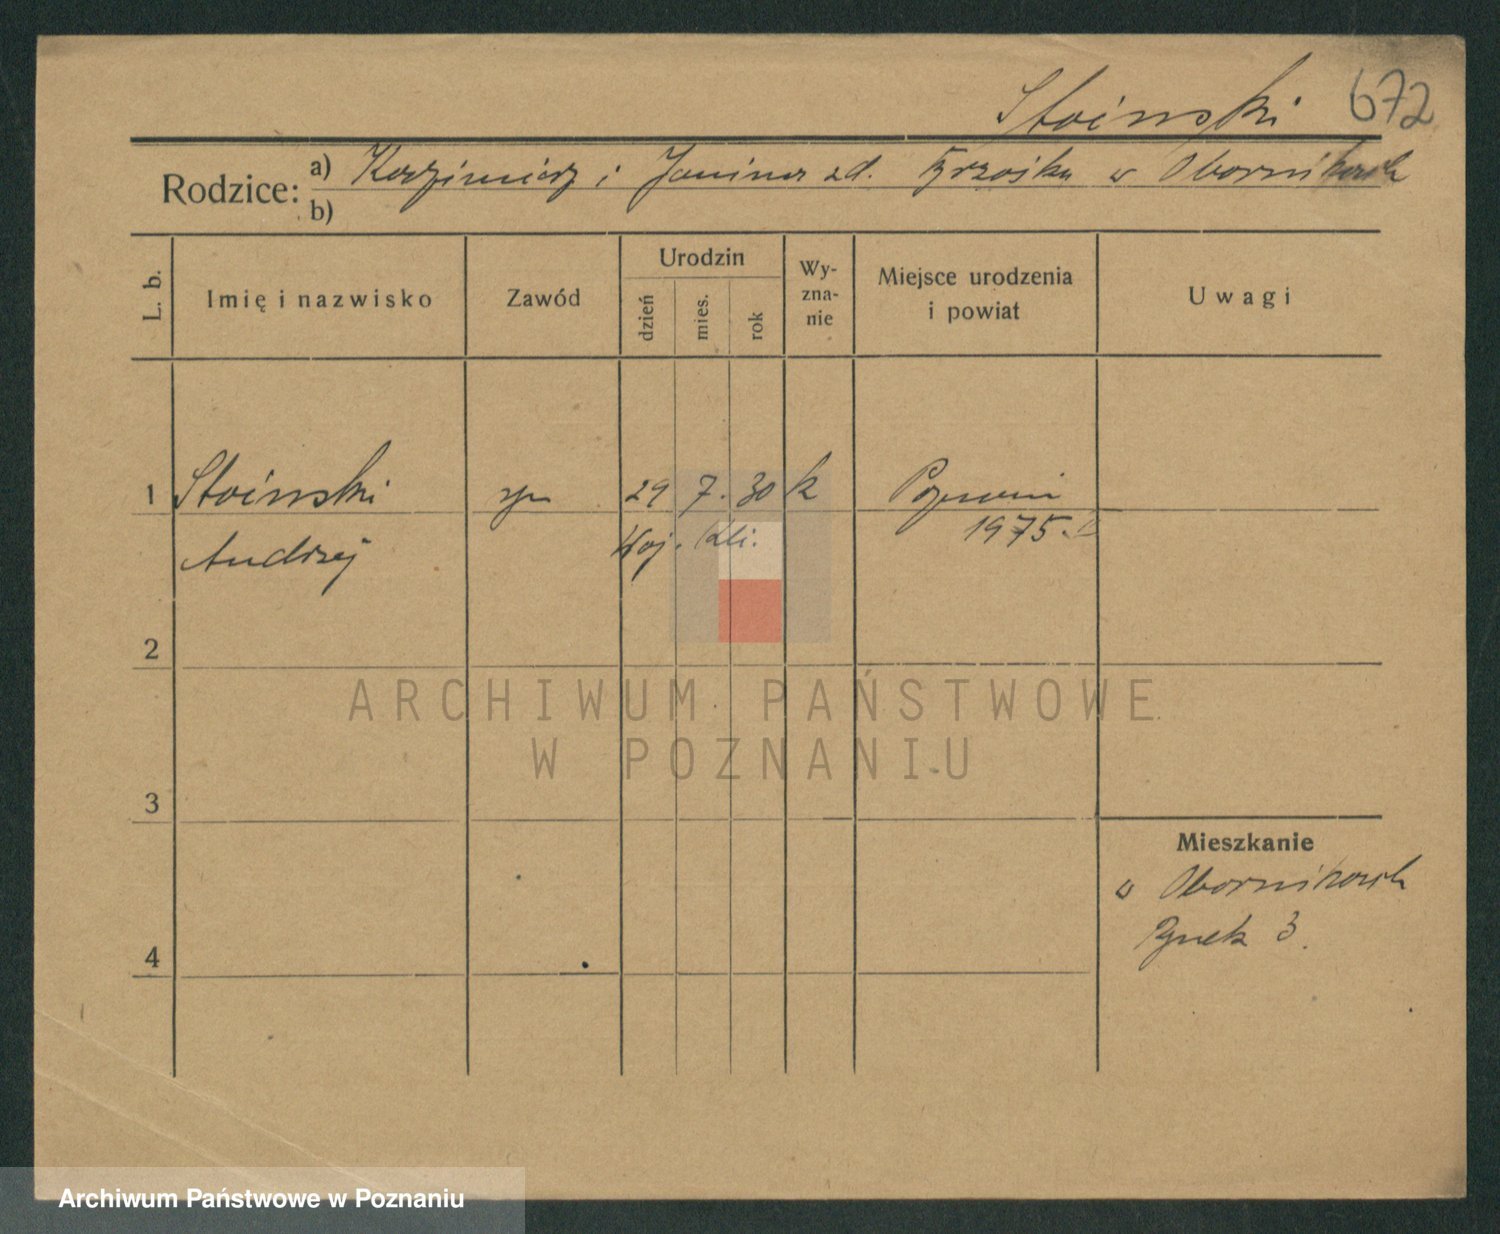 Stoinski 672
Rodzice: a) Kazimierz i Janina zd. w Obornikach
b)
L. b.
Imię i nazwisko
Zawód
Urodzin
dzień
mies.
rok
Wy-
zna-
nie
Miejsce urodzenia
i powiat
Uwagi
1 Stoinski syn 29 7. 30 k Poznaniu
Andrzej
1975.
2
ARCHIWUM PAŃSTWOWE
W POZNANIU
3
Mieszkanie
w Obornikach
Rynek 3.
4
Archiwum Państwowe w Poznaniu